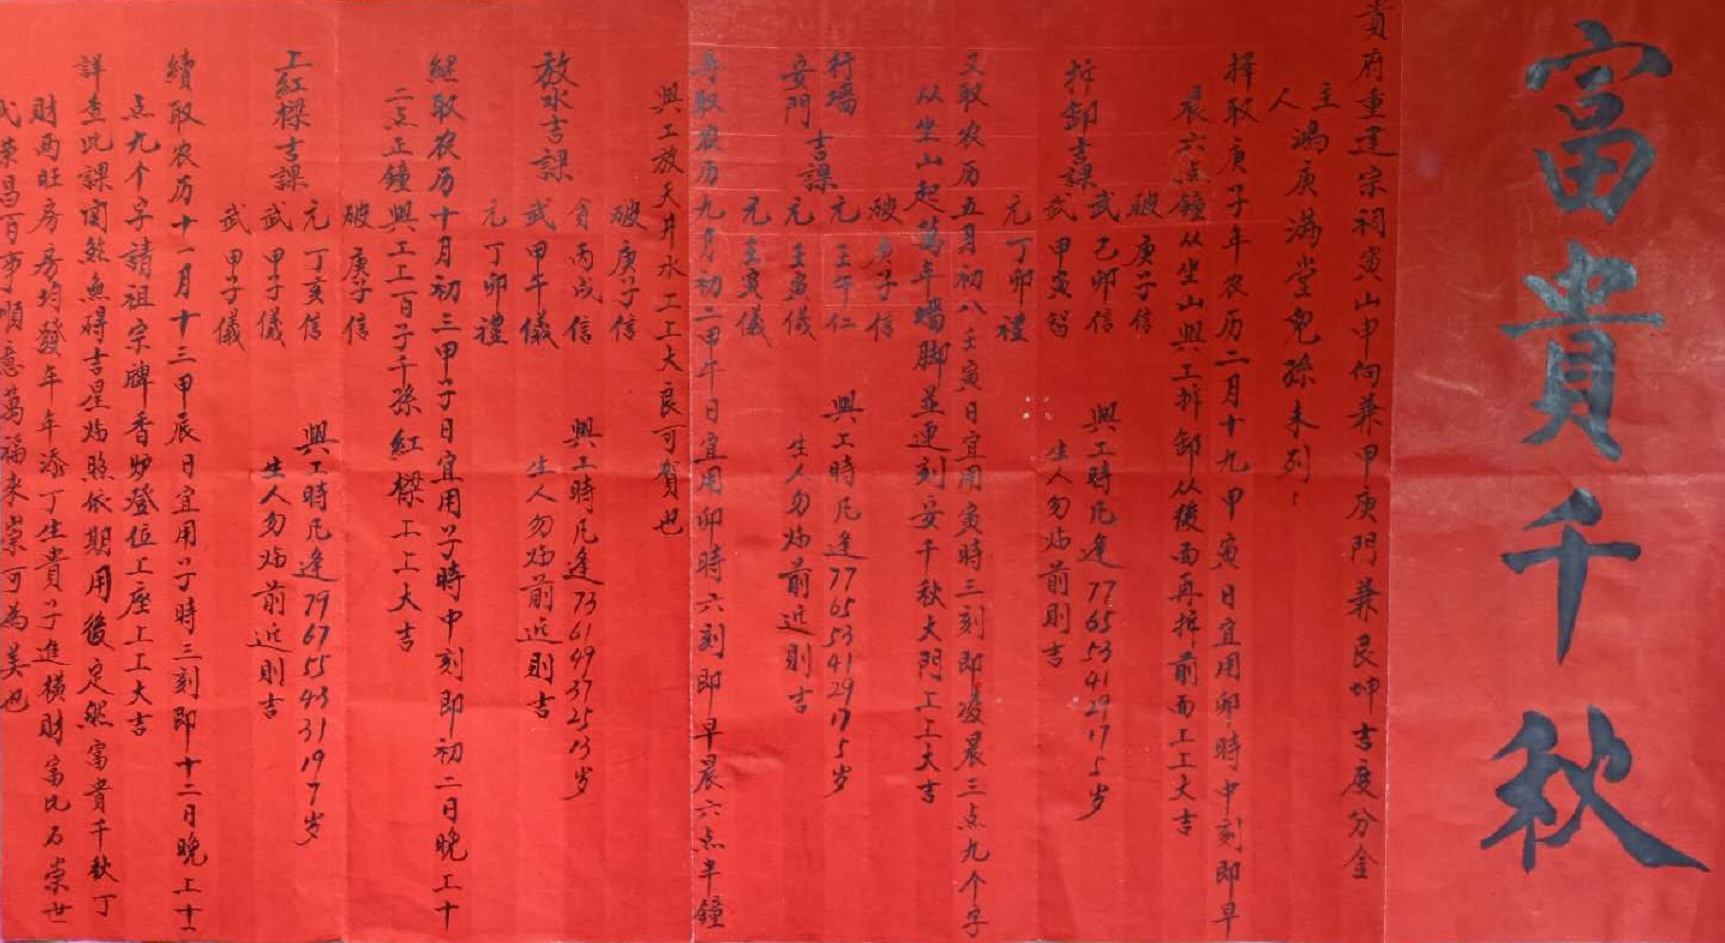 富貴千秋
貴府重建宗祠寅山申向兼甲庚門兼艮坤吉度分金
主
人
鴻庚滿堂兒孫未列
擇取庚子年农历二月十九甲寅日宜用卯時中刻即早
晨六点鐘从坐山興工拆卸从後面再拆前面上工大吉
破庚子信
拆卸吉課
武己卯信
武甲寅智
元丁卯禮
興工時凡逢77 65 53 41 29 17 5岁
生人勿临前則吉
又取农历五月初八壬寅日宜用寅時三刻即凌晨三点九个字
从坐山起萬年墻脚並連刻安千秋大門工工大吉
破庚子信
行墻
安門
吉課
元壬午仁
元壬寅儀
元壬寅儀
興工時凡逢77 65 53 41 29 17 5岁
生人勿临前近則吉
再取农历九月初二甲午日宜用卯時六刻即早晨六点半鐘
興工放天井水工工大良可賀也
破庚子信
放水吉課
貪丙戌信
武甲午儀
元丁卯禮
興工時凡逢73 61 49 37 25 13岁
生人勿临前近則吉
継取农历十月初三甲子日宜用子時中刻即初二日晚上十
二点正鐘興工上百子千孫紅樑工上大吉
破庚子信
上紅樑吉課
元丁亥信
武甲子儀
武甲子儀
興工時凡逢79 67 55 43 31 19 7岁
生人勿临前近則吉
續取农历十一月十三甲辰日宜用子時三刻即十二月晚上十一
点九个字請祖宗牌香炉登位工座工工大吉
詳查此課周然無碍吉星临照依期用後定然富貴千秋丁
財両旺房房均發年年添丁生貴子進横財富比石崇世
代荣昌百事順意萬福来崇可為美也